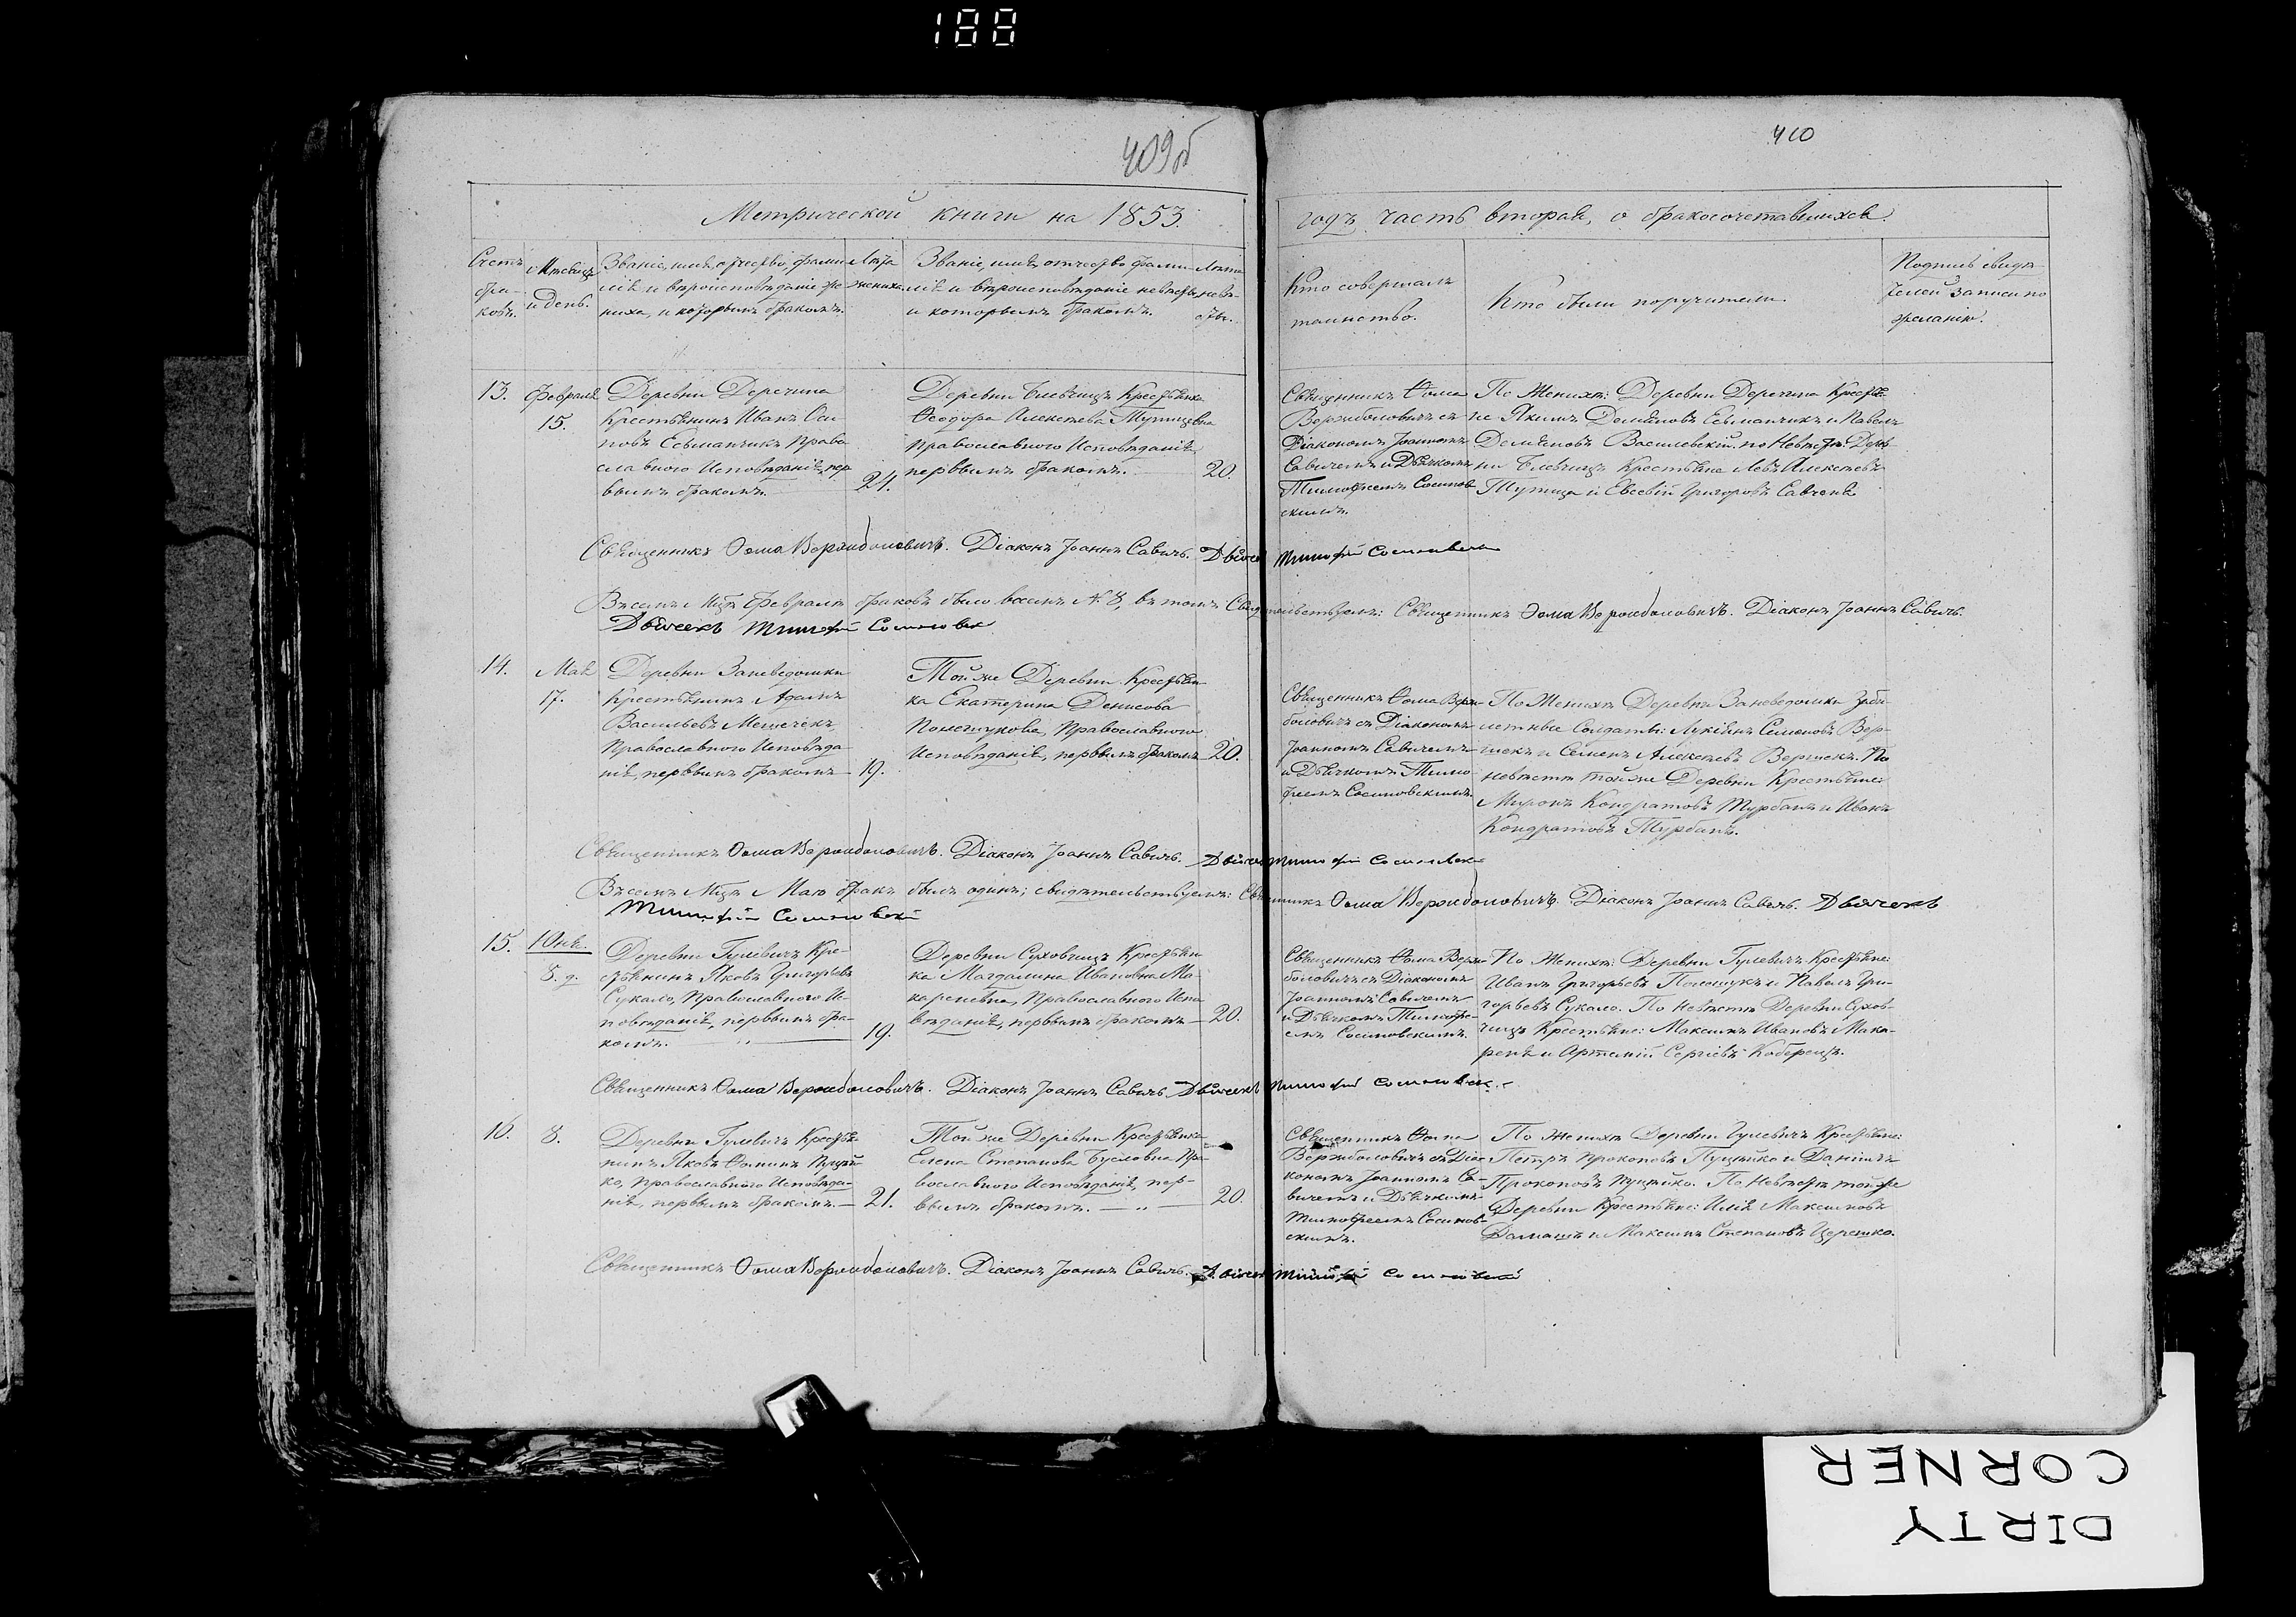 188
409об
410
Метрической книги на 1853.
годъ часть вторая, о бракосочетавшихся.
Счетъ
бра-
ковъ.
Мѣсяцъ
и день.
Званіе, имя, отчество, фами-
лія и вѣроисповѣданіе же-
ниха, и которымъ бракомъ.
Лѣта
жениха
Званіе, имя, отчество фами-
лія и вѣроисповѣданіе невѣсты,
и которымъ бракомъ.
Лѣта
невѣ-
сты.
Кто совершалъ
таинство.
Кто были поручители
Подпись свидѣ-
телей записи по
желанію.
13.
Февраля
15.
Деревни Деречина
Крестьянинъ Иванъ Оси
повъ Есьманчикъ Право
славнаго Исповѣданія, пер
вымъ бракомъ.
21.
Деревни Блевчицъ Крестьянка
Феодора Алексѣева Тутицевна
Православного Исповѣданія,
первымъ бракомъ.
20.
Священникъ Ѳома
Вержболовичъ съ
Діакономъ Іоанномъ
Савичемъ и Дьячкомъ
Тимофеемъ Сосинов
скимъ.
По Женихѣ: Деревни Деречина Крестья
не Якимъ Демьяновъ Есьманчикъ и Павелъ
Демьяновъ Василевскій. по Невѣстѣ: Дерев
ни Блевчицъ Крестьяне Левъ Алексѣевъ
Тутица и Евсевій Григоровъ Савченя
Священникъ Ѳома Вержболовичъ. Діаконъ Іоаннъ Савичъ. Дьячекъ Тимофей Сосиновскій
Въ семъ Мцѣ Февралѣ браковъ было всѣмъ № 8, въ томъ Свидѣтельствуемъ: Священникъ Ѳома Вержболовичъ. Діаконъ Іоаннъ Савичъ.
Дьячекъ Тимофей Сосиновскій
14.
Мая
17.
Деревни Заневедомки
Крестьянинъ Адамъ
Васильевъ Мешечекъ,
Православного Исповѣда
нія, первымъ бракомъ
19.
Той же Деревни Крестьян
ка Екатерина Денисова
Полещукова, Православного
Исповѣданія, первымъ бракомъ
20.
Священникъ Ѳома Верж
боловичъ съ Діакономъ
Іоанномъ Савичемъ
и Дьячкомъ Тимо
феемъ Сосиновскимъ.
По Женихѣ Деревни Заневедомки
Солдаты: Лукіянъ Семеновъ Вер-
шекъ и Семенъ Алексѣевъ Вершекъ. По
невѣстѣ той же Деревни Крестьяне:
Миронъ Кондратовъ Турбанъ и Иванъ
Кондратовъ Турбанъ.
Священникъ Ѳома Вержболовичъ. Діаконъ Іоаннъ Савичъ. Дьячекъ Тимофей Сосиновскій
Въ семъ Мцѣ Маю бракъ былъ одинъ; свидѣтельствуемъ: Священникъ Ѳома Вержболовичъ. Діаконъ Іоаннъ Савичъ. Дьячекъ
Тимофей Сосиновскій
15.
Юня.
8. д.
Деревни Гулевичъ Кре-
стьянинъ Яковъ Григорьевъ
Сукало, Православного Ис-
повѣданія, первымъ бра-
комъ.
19.
Деревни Суховчицъ Крестьян
ка Магдалина Ивановна Ма-
кареневна, Православного Испо
вѣданія, первымъ бракомъ
20.
Священникъ Ѳома Верж
боловичъ съ Діакономъ
Іоанномъ Савичемъ
и Дьячкомъ Тимофе-
емъ Сосиновскимъ.
По Женихѣ: Деревни Гулевичъ Крестьяне:
Иванъ Григорьевъ Полещукъ и Павелъ Гри-
горьевъ Сукало. По Невѣстѣ Деревни Сухов-
чицъ Крестьяне: Максимъ Ивановъ Мака-
реня и Артемій Сергіевъ Коберецъ.
Священникъ Ѳома Вержболовичъ. Діаконъ Іоаннъ Савичъ Дьячекъ Тимофей Сосиновскій
16.
8.
Деревни Гулевичъ Крестья
нинъ Яковъ Ѳоминъ Пуцей
ко, Православного Исповѣда-
нія, первымъ бракомъ.
21.
Той же Деревни Крестьянка
Елена Степанова Бусловна Пра-
вославного Исповѣданія, пер-
вымъ бракомъ.
20.
Священникъ Ѳома
Вержболовичъ съ Діа
кономъ Іоанномъ Са-
вичемъ и Дьячкомъ
Тимофеемъ Сосинов-
скимъ.
По Женихѣ Деревни Гулевичъ Крестьяне:
Петръ Прокоповъ Пуцейко и Даніилъ
Прокоповъ Пуцейко. По Невѣстѣ той же
Деревни Крестьяне: Илія Максимовъ
Домашъ и Максимъ Степановъ Церешко.
Священникъ Ѳома Вержболовичъ. Діаконъ Іоаннъ Савичъ. Дьячекъ Тимофей Сосиновскій
DIRTY
CORNER